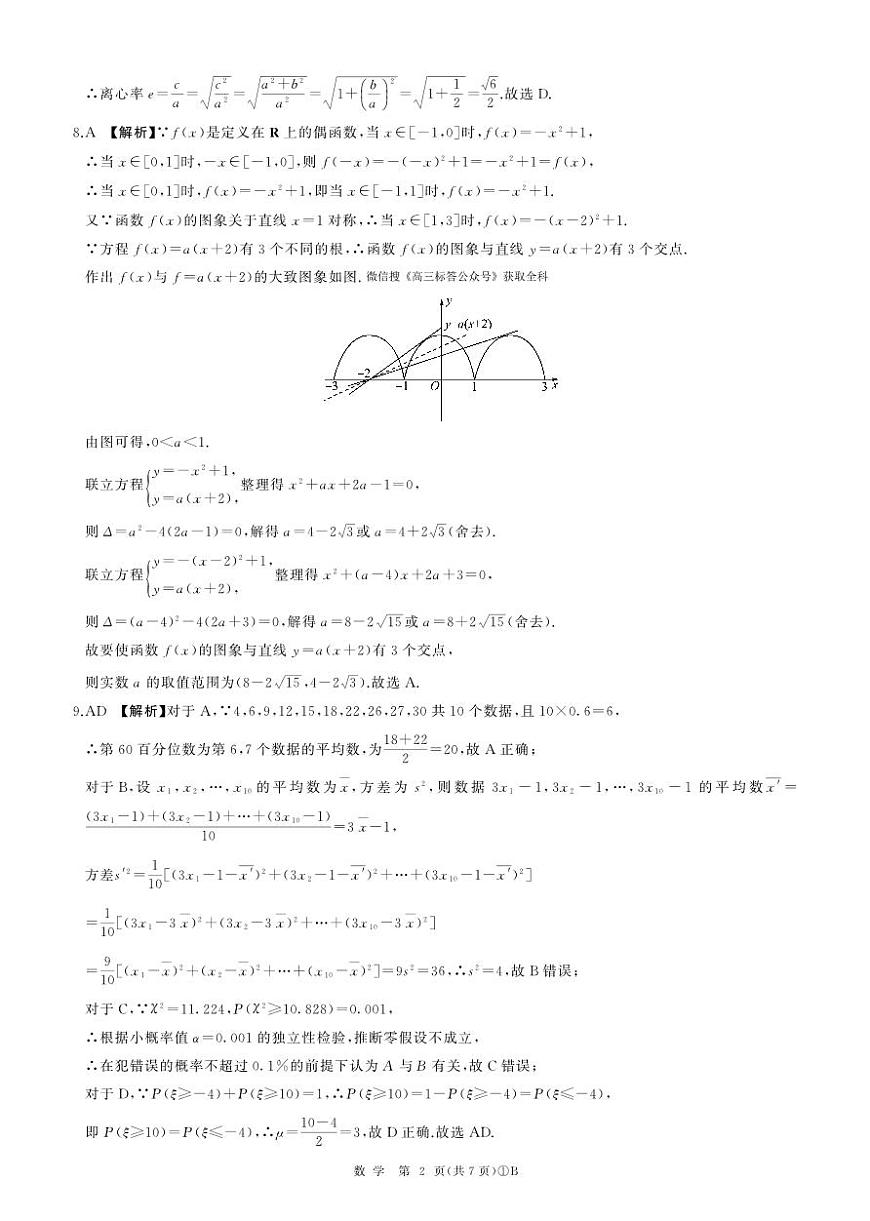 ∴离心率 e=c/a=√(c²/a²)=√((a²+b²)/a²)=√(1+(b/a)²)=√(1+1/2)=√6/2.故选 D.
8.A 【解析】∵f(x)是定义在 R 上的偶函数,当 x∈[-1,0]时,f(x)=-x²+1,
∴当 x∈[0,1]时,-x∈[-1,0],则 f(-x)=-(-x)²+1=-x²+1=f(x),
∴当 x∈[0,1]时,f(x)=-x²+1,即当 x∈[-1,1]时,f(x)=-x²+1.
又∵函数 f(x)的图象关于直线 x=1 对称,∴当 x∈[1,3]时,f(x)=-(x-2)²+1.
∵方程 f(x)=a(x+2)有 3 个不同的根,∴函数 f(x)的图象与直线 y=a(x+2)有 3 个交点.
作出 f(x)与 f=a(x+2)的大致图象如图. 微信搜《高三标答公众号》获取全科
y
y a(x+2)
-3 -2 -1 O 1 3 x
由图可得,0<a<1.
联立方程{y=-x²+1, y=a(x+2), 整理得 x²+ax+2a-1=0,
则 Δ=a²-4(2a-1)=0,解得 a=4-2√3或 a=4+2√3(舍去).
联立方程{y=-(x-2)²+1, y=a(x+2), 整理得 x²+(a-4)x+2a+3=0,
则 Δ=(a-4)²-4(2a+3)=0,解得 a=8-2√15或 a=8+2√15(舍去).
故要使函数 f(x)的图象与直线 y=a(x+2)有 3 个交点,
则实数 a 的取值范围为(8-2√15,4-2√3).故选 A.
9.AD 【解析】对于 A,∵4,6,9,12,15,18,22,26,27,30 共 10 个数据,且 10×0.6=6,
∴第 60 百分位数为第 6,7 个数据的平均数,为(18+22)/2=20,故 A 正确;
对于 B,设 x₁,x₂,…,x₁₀ 的平均数为x̄,方差为 s²,则数据 3x₁-1,3x₂-1,…,3x₁₀-1 的平均数x̄′=
((3x₁-1)+(3x₂-1)+…+(3x₁₀-1))/10=3x̄-1,
方差s′²=1/10[(3x₁-1-x̄′)²+(3x₂-1-x̄′)²+…+(3x₁₀-1-x̄′)²]
=1/10[(3x₁-3x̄)²+(3x₂-3x̄)²+…+(3x₁₀-3x̄)²]
=9/10[(x₁-x̄)²+(x₂-x̄)²+…+(x₁₀-x̄)²]=9s²=36,∴s²=4,故 B 错误;
对于 C,∵χ²=11.224,P(χ²≥10.828)=0.001,
∴根据小概率值 α=0.001 的独立性检验,推断零假设不成立,
∴在犯错误的概率不超过 0.1%的前提下认为 A 与 B 有关,故 C 错误;
对于 D,∵P(ξ≥-4)+P(ξ≥10)=1,∴P(ξ≥10)=1-P(ξ≥-4)=P(ξ≤-4),
即 P(ξ≥10)=P(ξ≤-4),∴μ=(10-4)/2=3,故 D 正确.故选 AD.
数 学 第 2 页(共 7 页)①B